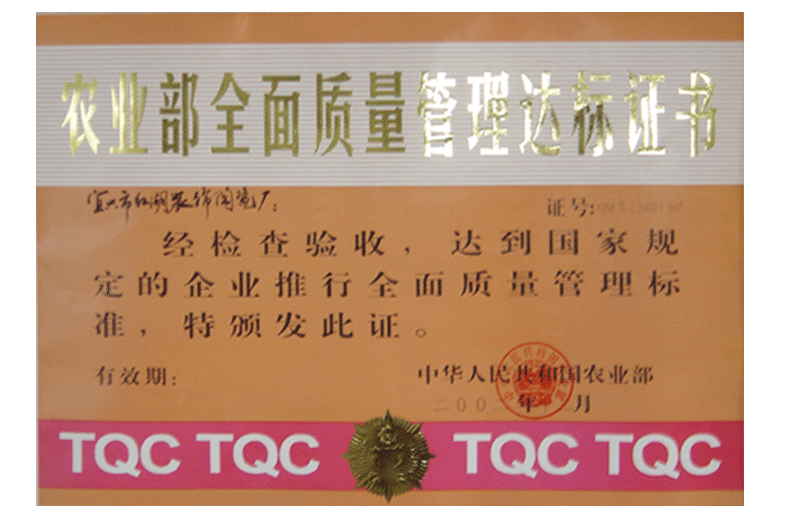 农业部全面质量管理达标证书
宜兴市红湖装饰陶瓷厂： 证号:
经检查验收，达到国家规
定的企业推行全面质量管理标
准，特颁发此证。
有效期： 中华人民共和国农业部
二〇〇二年 月
TQC TQC TQC TQC